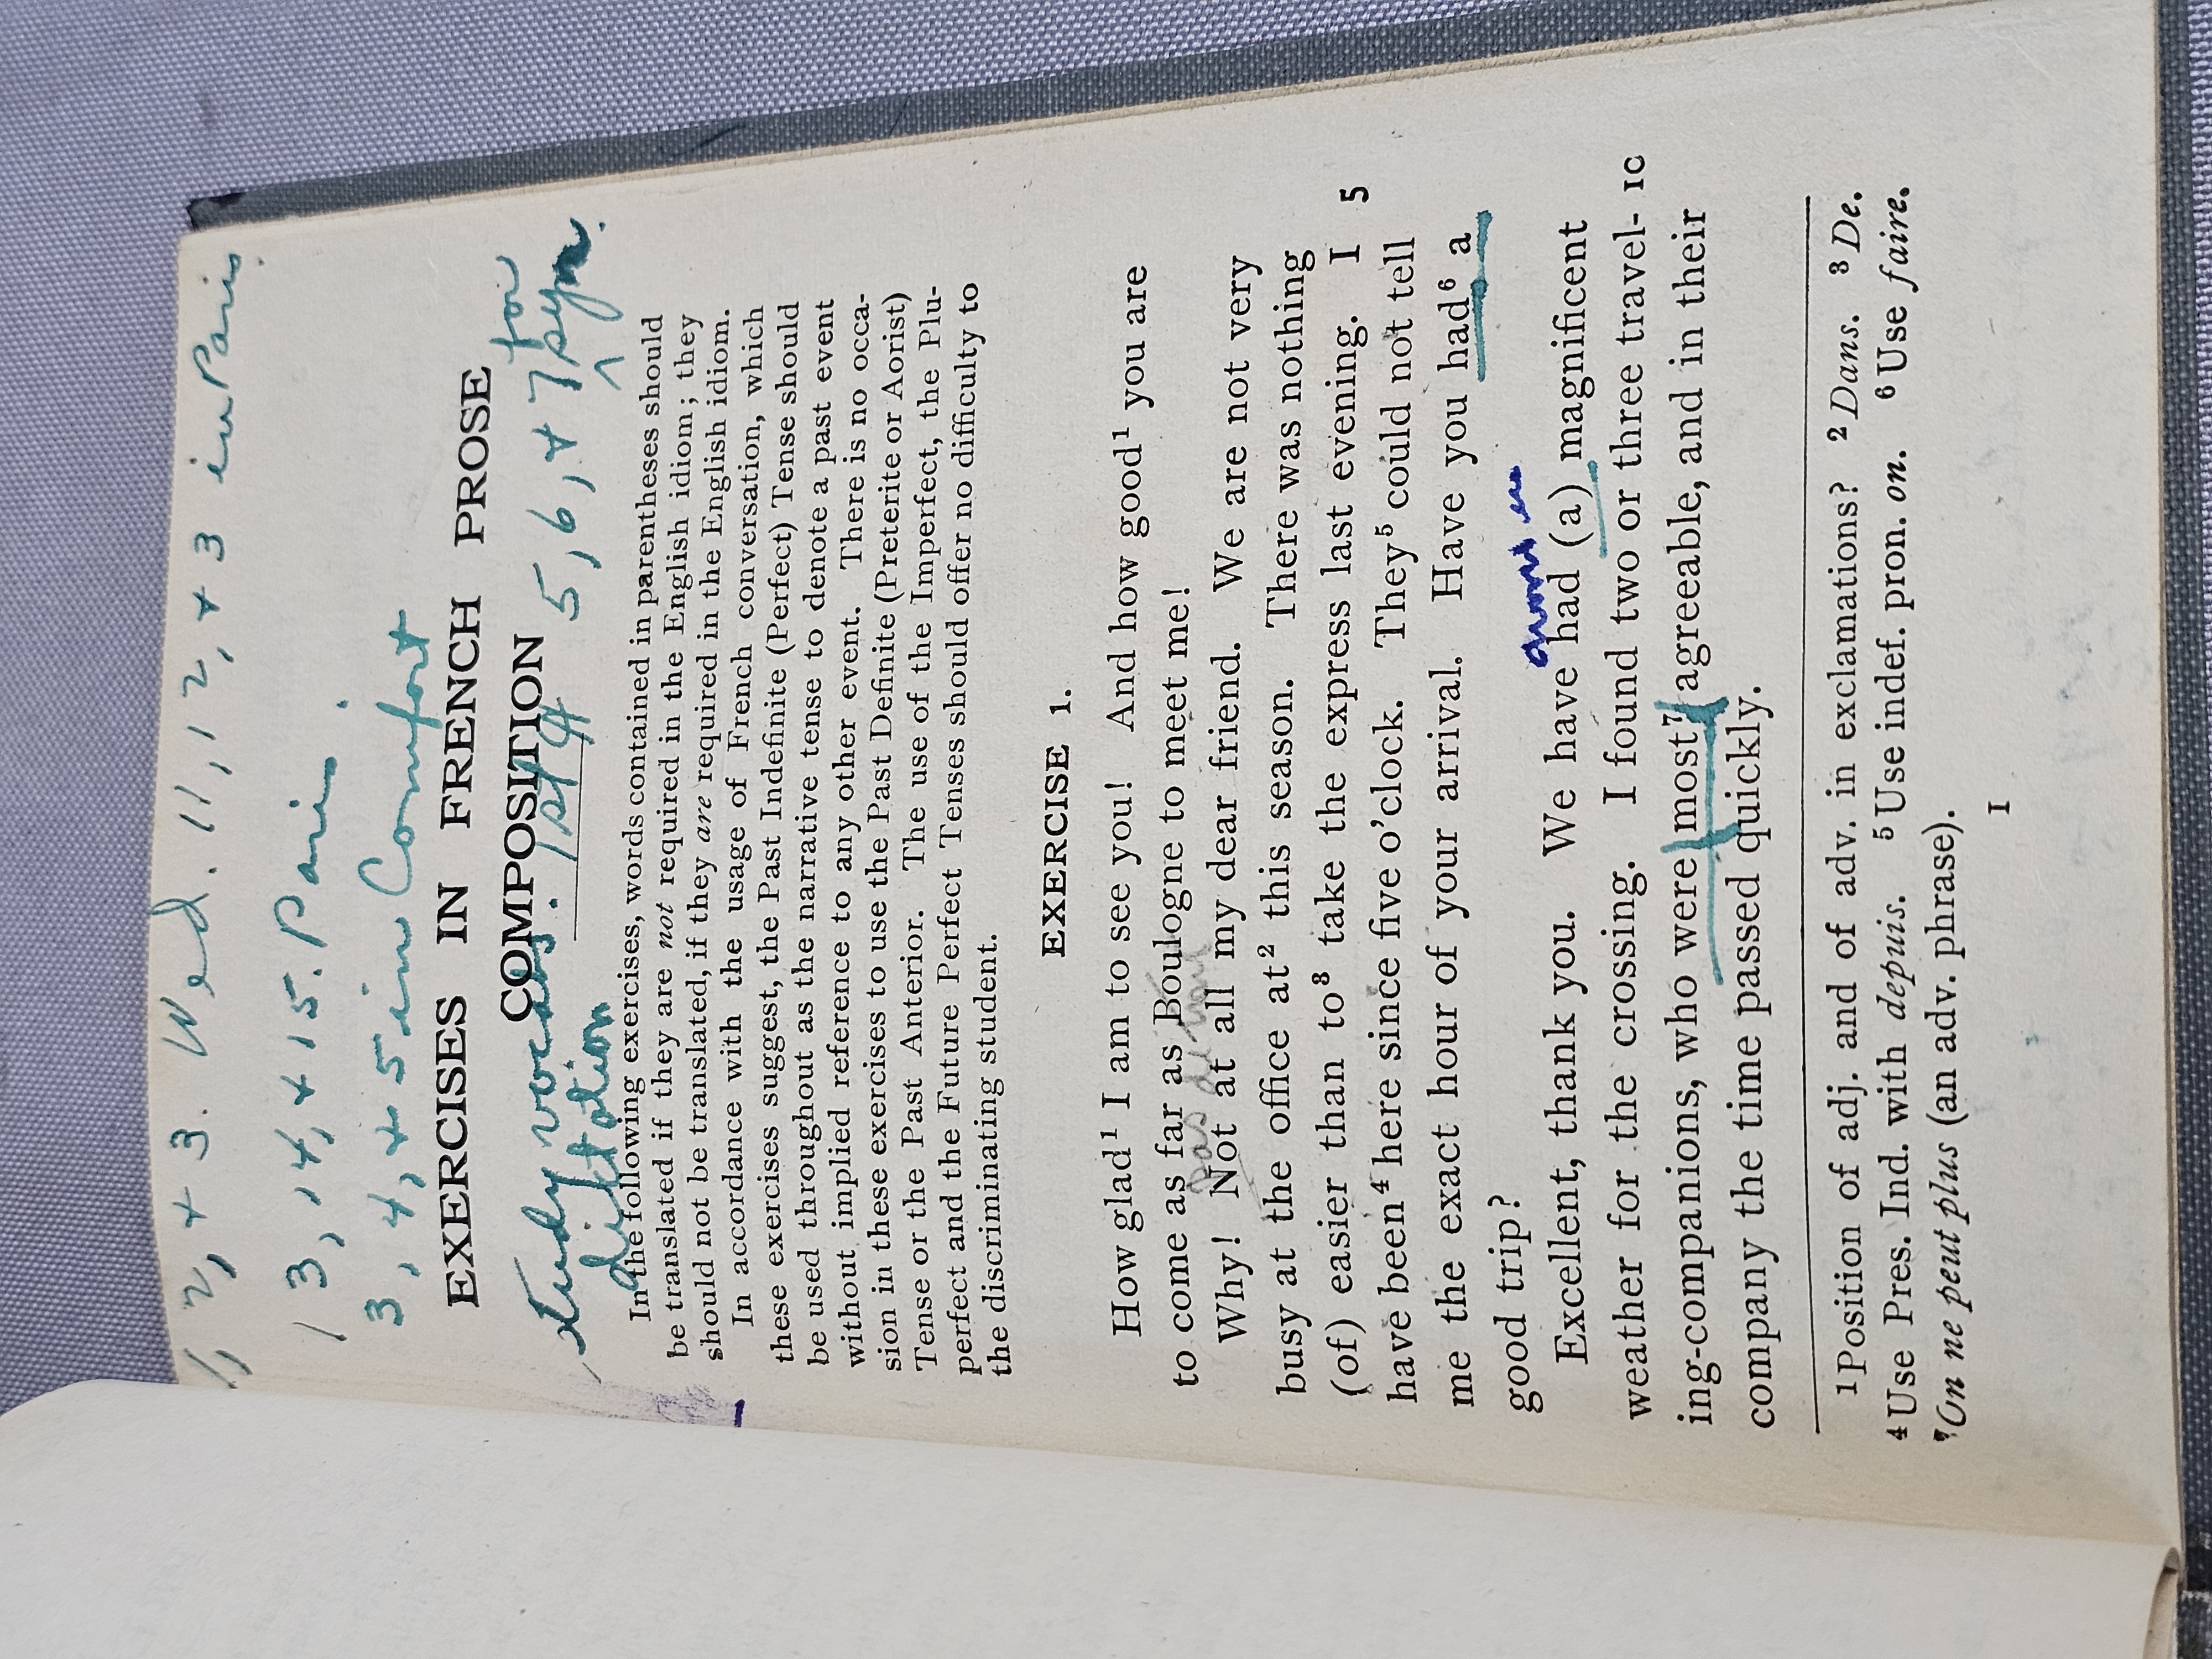 1, 2, + 3. Wed. 11, 12, + 3 in Paris.
13, 14, + 15. Paris.
3, 4, + 5 in Comfort
EXERCISES IN FRENCH PROSE
COMPOSITION
study vocabs. 1st 4 5, 6, + 7 for
dictation
In the following exercises, words contained in parentheses should
be translated if they are not required in the English idiom; they
should not be translated, if they are required in the English idiom.
In accordance with the usage of French conversation, which
these exercises suggest, the Past Indefinite (Perfect) Tense should
be used throughout as the narrative tense to denote a past event
without implied reference to any other event. There is no occa-
sion in these exercises to use the Past Definite (Preterite or Aorist)
Tense or the Past Anterior. The use of the Imperfect, the Plu-
perfect and the Future Perfect Tenses should offer no difficulty to
the discriminating student.
EXERCISE 1.
How glad¹ I am to see you! And how good¹ you are
to come as far as Boulogne to meet me!
Why! Not at all my dear friend. We are not very
busy at the office at² this season. There was nothing
(of) easier than to⁸ take the express last evening. I 5
have been⁴ here since five o'clock. They⁵ could not tell
me the exact hour of your arrival. Have you had⁶ a
good trip?
avons eu
Excellent, thank you. We have had (a) magnificent
weather for the crossing. I found two or three travel- 10
ing-companions, who were (most⁷) agreeable, and in their
company the time passed quickly.
¹Position of adj. and of adv. in exclamations? ²Dans. ³De.
⁴Use Pres. Ind. with depuis. ⁵Use indef. pron. on. ⁶Use faire.
⁷On ne peut plus (an adv. phrase).
1